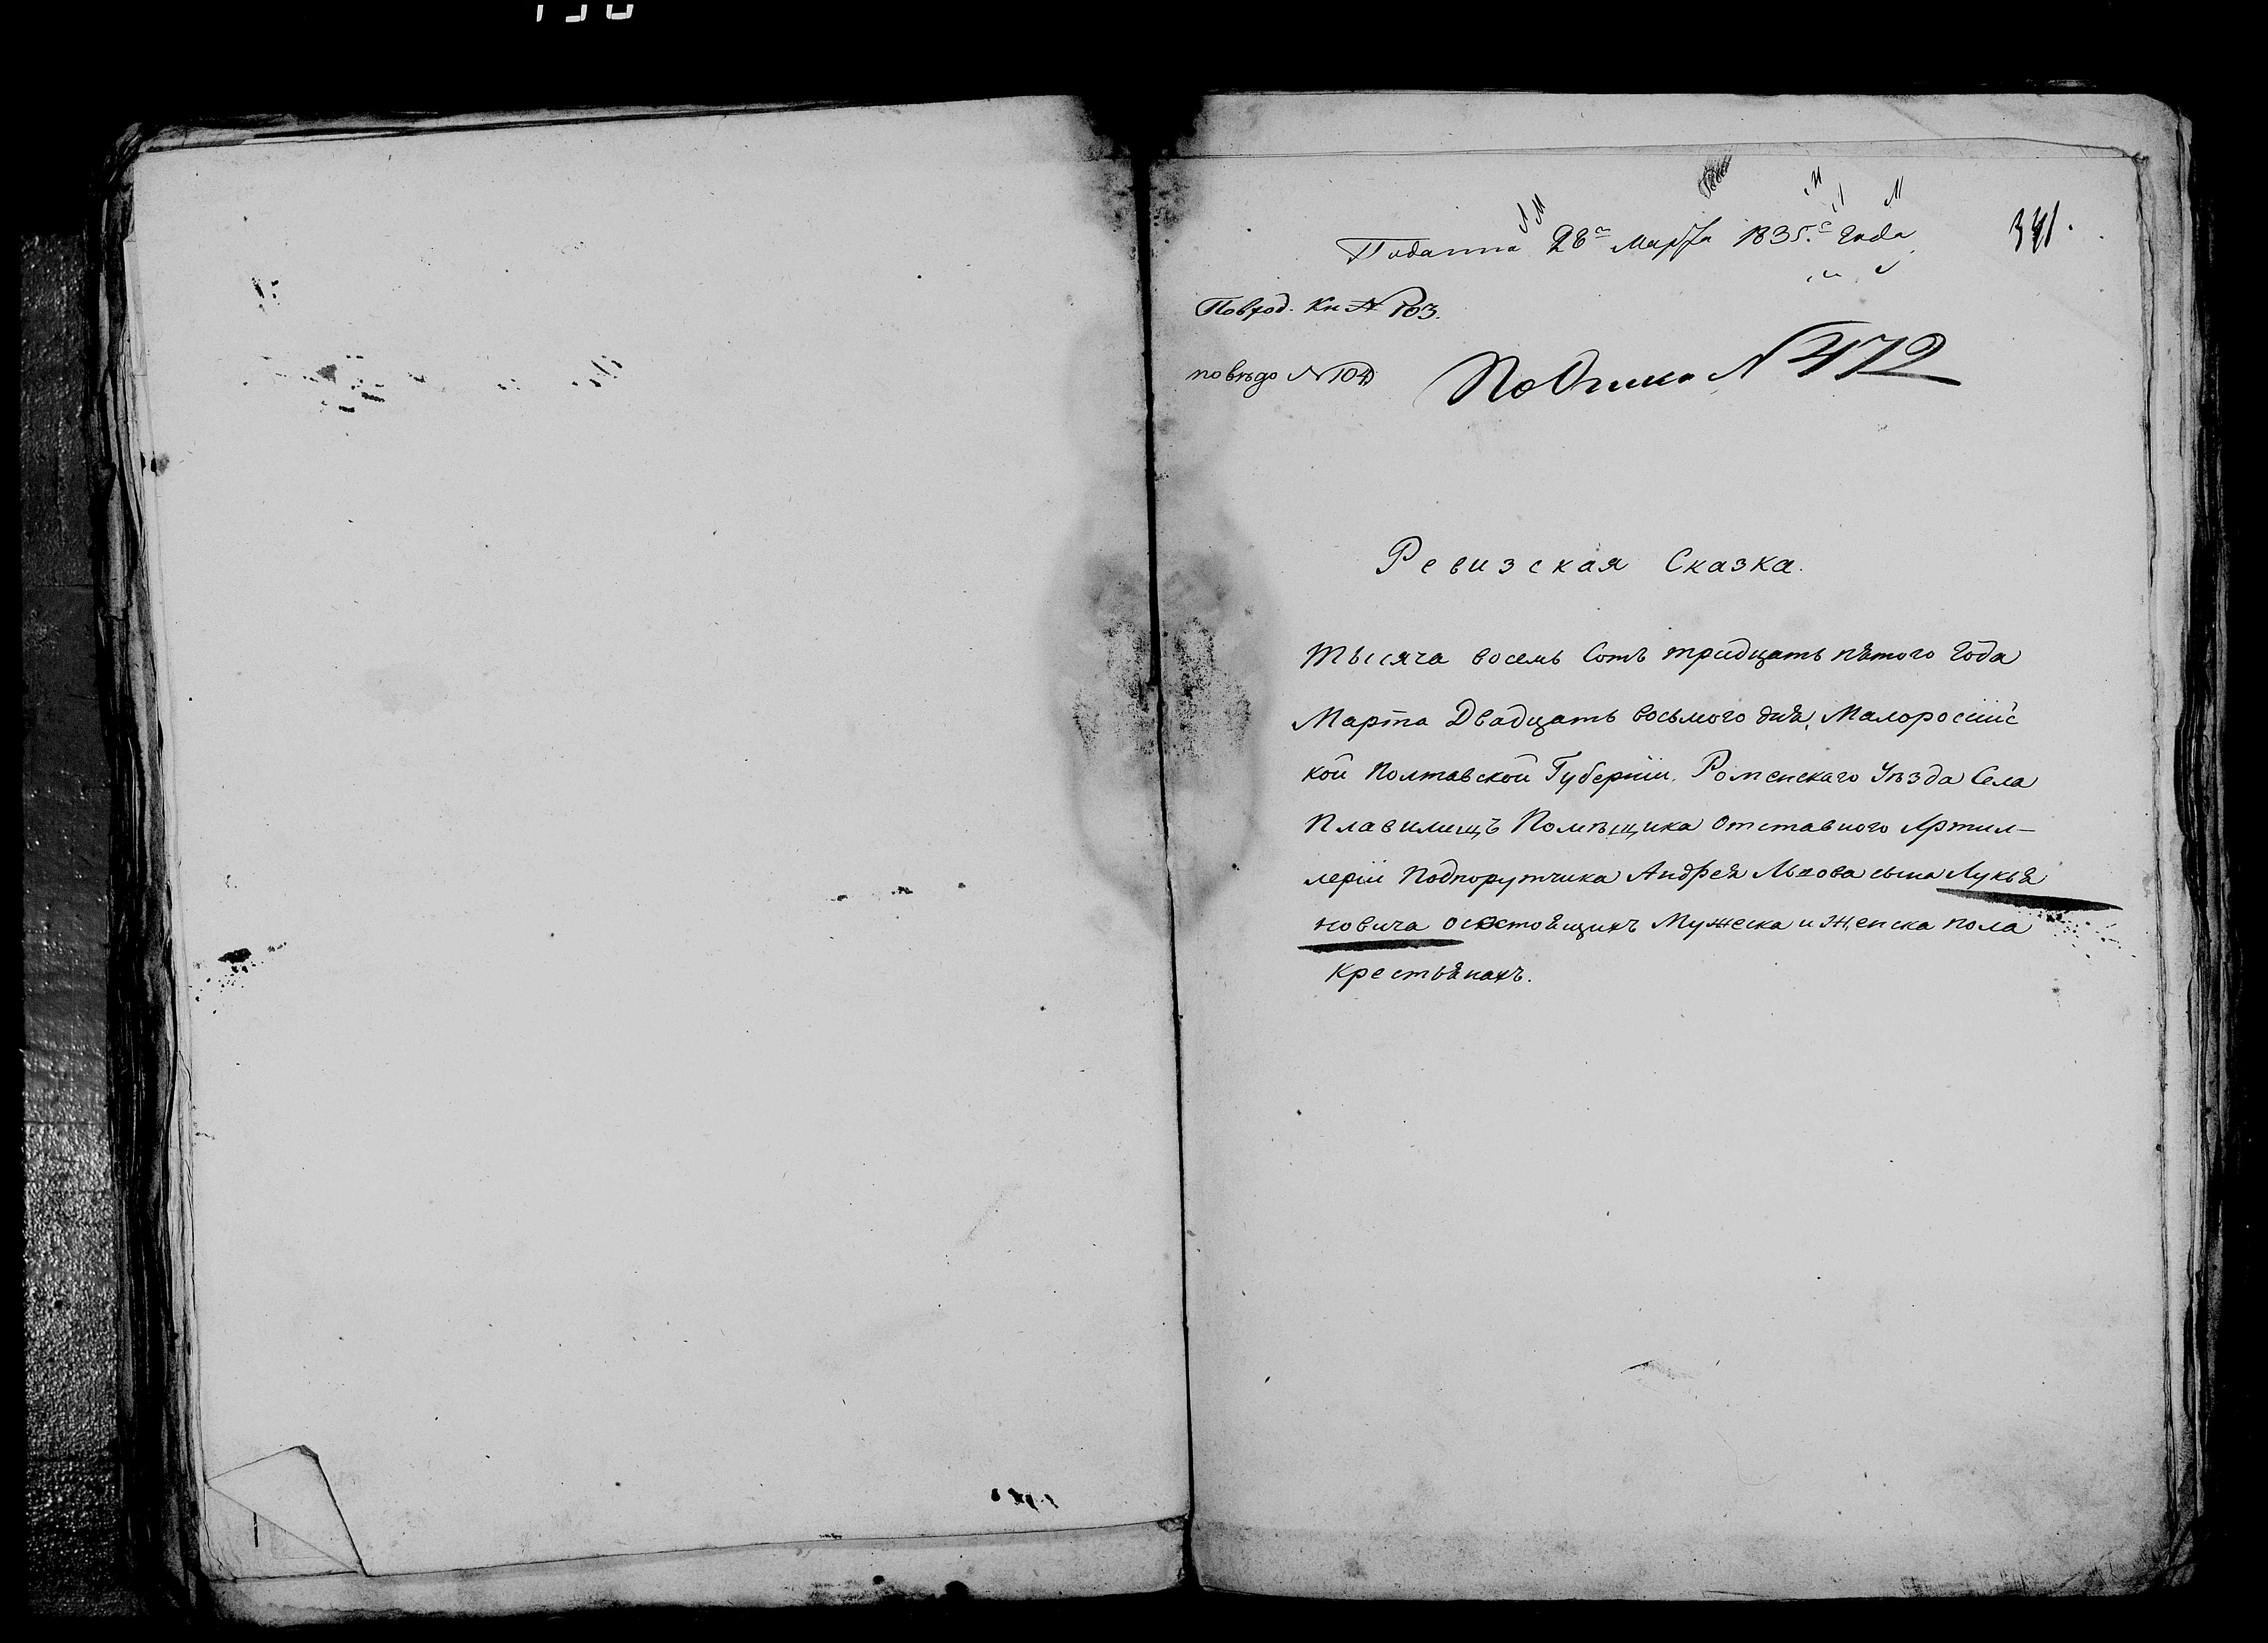 Поданна 28го Марта 1835.го Года
341.
По вход. Кн № 103.
по вѣдо № 104
По Описи № 472
Ревизская Сказка.
Тысяча восемь Сотъ тридцать пѣтого Года
Марта Двадцать восьмого дня, Малороссійс
кой Полтавской Губерніи. Роменскаго Уѣзда Села
Плавилищъ Помѣщика Отставного Артил-
леріи Подпорутчика Андрея Львова сына Лукья
новича о состоящихъ Мужеска и Женска пола
крестьянахъ.